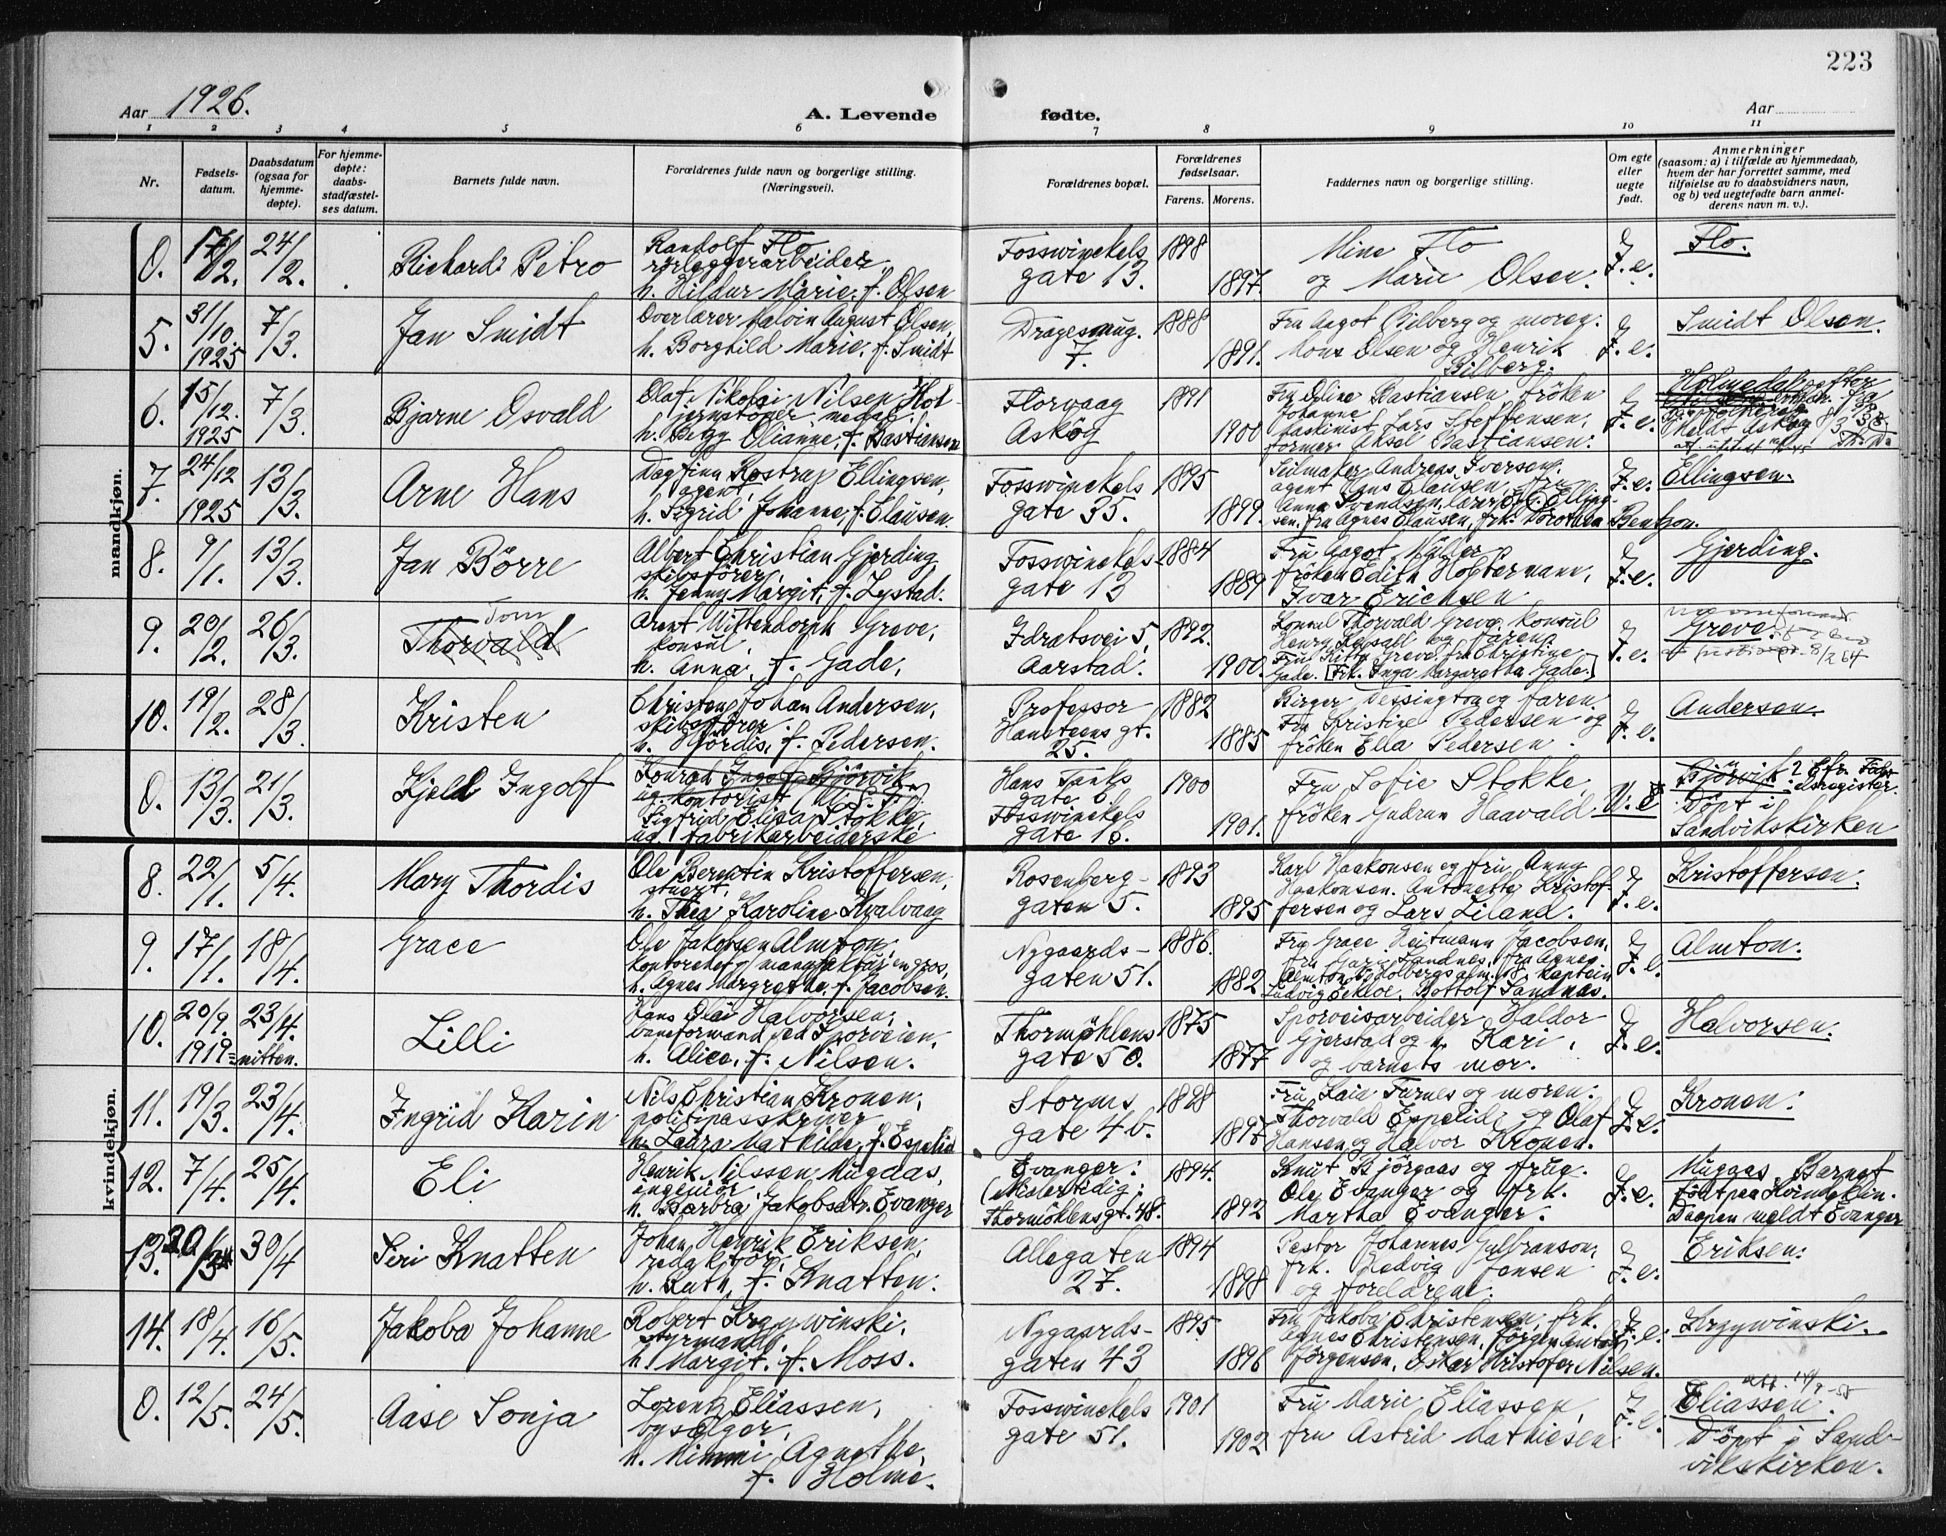 223
Aar 1926.
A. Levende fødte.
Aar
1 2 3 4 5 6 7 8 9 10 11
Nr.
Fødsels-
datum.
Daabsdatum
(ogsaa for
hjemme-
døpte).
For hjemme-
døpte:
daabs-
stadfæstel-
ses datum.
Barnets fulde navn.
Forældrenes fulde navn og borgerlige stilling.
(Næringsvei).
Forældrenes bopæl.
Forældrenes
fødselsaar.
Farens. Morens.
Faddernes navn og borgerlige stilling.
Om egte
eller
uegte
født.
Anmerkninger
(saasom: a) i tilfælde av hjemmedaab,
hvem der har forrettet samme, med
tilføielse av to daabsvidners navn,
og b) ved uegtefødte barn anmel-
derens navn m. v.).
mandkjøn.
0. 17/2. 24/2. Richard Petro
Randolf Flo
rørleggerarbeider
h. Hildur Marie, f. Olsen
Fosswinckels
gate 13.
1898
1897.
Mine Flo
og Marie Olsen.
I. e.
Flo.
5. 31/10. 1925 7/3. Jan Smidt
Overlærer Malvin August Olsen,
h. Borghild Marie, f. Smidt
Dragesmug.
7.
1888
1891.
Fru Aagot Bilberg og moren.
Mons Olsen og Henrik
Bilberg.
I. e.
Smidt Olsen.
6. 15/12. 1925 7/3. Bjarne Osvald
Olaf Nikolai Nilsen Hol-
jernstøper medal
h. Betzy Olianne, f. Bastiansen
Florvaag
Askøy
1891
1900
Fru Oline Bastiansen, frøken
Johanne
maskinist Lars Steffensen,
former Aksel Bastiansen.
I. e.
Holmedal efter
7. 24/12 1925 13/3. Arne Hans
Dagfinn Rostrup Ellingsen,
agent,
h. Sigrid Johanne, f. Clausen.
Fosswinckels
gate 35.
1895
1899.
Seilmaker Andreas Iversen,
agent Hans Clausen, fru
Anna Svendsen, lærer O. C. Elling-
sen, fru Agnes Clausen, frk. Dorothea Bentzon.
I. e.
Ellingsen.
8. 9/1. 13/3. Jan Börre
Albert Christian Gjerding
skibsfører,
h. Jenny Margit, f. Lystad.
Fosswinckels-
gate 13
1884
1889
Fru Aagot Müller,
frøken Edith Holtermann,
Ivar Erichsen
I. e.
Gjerding.
9. 20/2. 26/3. Thorvald Tom
Arent Wittendorph Greve,
konsul,
h. Anna, f. Gade,
Idrætsvei 5,
Aarstad.
1892.
1900.
Konsul Thorvald Greve, konsul
Henry Kaysall og faren.
Fru Kitty Greve, fru Christine
Gade. [Frk. Inga Margaretha Gade.]
I. e.
Greve.
8/2 64
10. 19/2. 28/3. Kristen
Christen Johan Andersen,
skibsfører.
h. Hjördis, f. Pedersen.
Professor
Hansteens gt.
25.
1882
1885
Birger Tessington og faren.
Fru Kristine Pedersen og
frøken Ella Pedersen.
I. e.
Andersen.
0. 13/3. 21/3. Kjell Ingolf
Konrad Ingolf Bjørvik
ug. kontorist
Sigfrid Elisa Stokke,
ug. fabrikarbeiderske
Hans Tanks
gate 6
Fosswinckels
gate 16.
1900
1901.
Fru Sofie Stokke,
frøken Gudrun Haavald
U. e
Bjørvik?
Döpt i
Sandvikskirken
kvindekjøn.
8. 22/1. 5/4. Mary Thordis
Ole Berentin Kristoffersen,
stuert,
h. Thea Karoline Kvalvaag
Rosenberg-
gaten 5.
1893
1895
Karl Haakonsen og fru Anna
Haakonsen. Antonette Kristof-
fersen og Lars Liland.
I. e.
Kristoffersen.
9. 17/1. 18/4. Grace
Ole Jakobsen Almton,
kontorchef manufaktur en gros,
h. Agnes Margrethe, f. Jacobsen.
Nygaards-
gaten 51.
1886.
1882
Fru Grace Heitmann Jacobsen,
fru Marie Sandnes, fru Agnes
Almton, Holbergsalm. 18, kaptein
Ludvig Eckhoe, Bottolf Sandnæs.
I. e.
Almton.
10. 20/9. 1919=nitten. 23/4. Lilli
Hans Olai Halvorsen,
baneformand ved Sporveien,
h. Alice, f. Nilsen.
Thormøhlens
gate 50.
1875
1877
Sporveisarbeider Haldor
Gjerstad og h. Kari,
og barnets mor.
I. e.
Halvorsen.
11. 19/3. 23/4. Ingrid Karin
Nils Christian Kronen,
politipasskriver
h. Laura Mathilde, f. Espelid
Storms
gate 4b.
1898
1895
Fru Kaia Furnes og moren.
Thorvald Espelid og Olaf
Hansen og Halvor Kronen.
I. e.
Kronen.
12. 7/4. 25/4. Eli
Henrik Nilssen Mugaas,
ingeniør,
h. Barbra Jakobsdtr. Evanger
Evanger:
(Midlertidig:
Thormøhlensgt. 48.
1894.
1892
Knut Bjørgaas og frue.
Ole Evanger og frk.
Martha Evanger.
I. e.
Mugaas Barnet
født paa Kvindeklin.
Daapen meldt Evanger
13. 30/4. Siri Knatten
Johan Henrik Eriksen,
redaktør,
h. Ruth, f. Knatten.
Allegaten
27.
1894
1898
Pastor Johannes Gulbranson,
frk. Hedvig Jensen
og foreldrene.
I. e.
Eriksen.
14. 18/4. 16/5. Jakoba Johanne
Robert Krzywinski,
styrmand,
h. Margit, f. Moss.
Nygaards-
gaten 43
1895
1896
Fru Jakoba Christensen, frk.
Agnes Christensen, Jørgen Anton
Jørgensen, Oskar Kristofer Nilsen.
I. e.
Krzywinski.
0. 12/5. 24/5. Aase Sonja
Lorentz Eliassen,
bysælger,
h. Mimmi Agnethe,
f. Holme.
Fosswinckels
gate 51.
1901
1902
Fru Marie Eliassen,
fru Astrid Mathiesen
I. e.
Eliassen.
Döpt i Sand-
vikskirken.